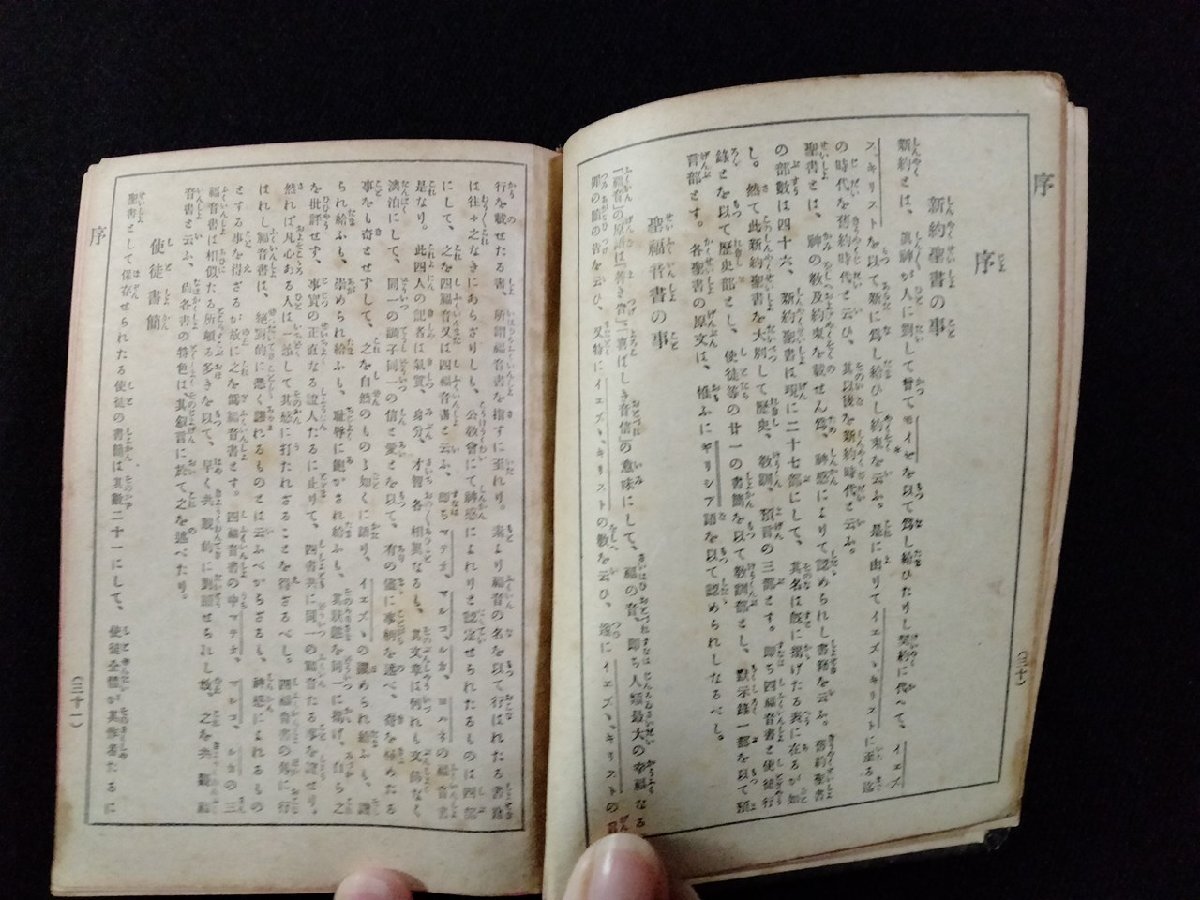 序
(三十)
序
新約聖書の事
新約とは、眞神が人に對して曾てモイゼを以て爲し給ひたりし契約に代へて、イエズ
スキリストを以て新に爲し給ひし約束を云ふ。是に由りてイエズスキリストに至る迄
の時代を舊約時代と云ひ、其以後を新約時代と云ふ。
聖書とは、神の敎及約束を載せん爲、神感によりて認められし書籍を云ふ。舊約聖書
の部數は四十六、新約聖書は現に二十七部にして、其名は既に揭げたる表に在るが如
し。然て此新約聖書を大別して歷史、敎訓、預言の三部とす。即ち四福音書と使徒行
錄とを以て歷史部とし、使徒等の廿一の書簡を以て敎訓部とし、默示錄一部を以て預
言部とす。各聖書の原文は、槪ふにギリシア語を以て認められしなるべし。
聖福音書の事
「福音」の原語は「善き音」「喜ばしき音信」の意味にして、福の音、即ち人類最大の幸福なる
罪の赦の告を云ひ、又特にイエズスキリストの敎を云ひ、遂にイエズスキリストの
行を載せたる書、所謂福音書を指すに至れり。素より福音の名を以て行はれたる書籍
は往々之なきにあらざりしも、公敎會にて神感によれりと認定せられたるものは四部
にして、之を四福音又は四福音書と云ふ、即ちマテオ、マルコ、ルカ、ヨハネの福音書
是なり。此四人の記者は氣質、身分、才智各相異なるも、其文章は何れも文飾なく
淡泊にして、同一の調子同一の信と愛とを以て、有の儘に事柄を述べ、奇を極めたる
事をも奇とせずして、之を自然のものゝ如くに語り、イエズスの讃められ給ふも、謗
られ給ふも、崇められ給ふも、耻辱に飽かされ給ふも、其狀態を同じに揭げ、自ら之
を批評せず、事實の正直なる證人たるに止りて、四書共に同一の福音たる事を證せり。
然れば凡心ある人は一讀して其感に打たれざることを得ざるべし。四福音書の外に行
はれし福音書は、絕對的に悉く謬れるものとは云ふべからざるも、神感によれるもの
とする事を得ざるが故に之を僞福音書とす。四福音書の中マテオ、マルコ、ルカの三
福音書は相似たる所頗る多きを以て、早く共觀的に對照せられし故、之を共觀福
音書と云ふ、尙各書の特色は其敍言に於て之を述べたり。
使徒書簡
聖書として保存せられたる使徒の書簡は其數二十一にして、使徒全體が其作者たるに
序
(三十一)